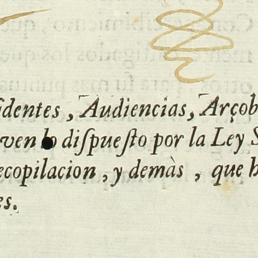 sidentes, Audiencias, Arçob
ven lo dispuesto por la Ley S
ecopilacion, y demàs, que h
es.